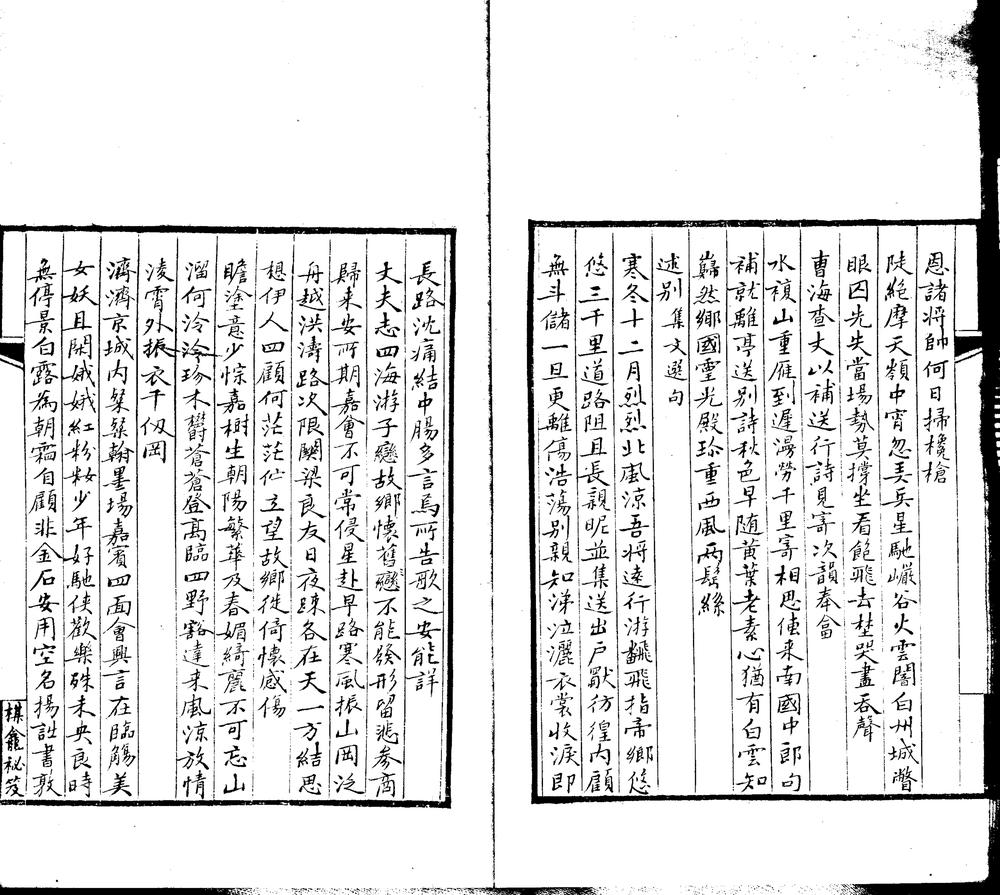 恩諸將帥何日掃欃槍
陡絶摩天嶺中宵忽美兵星馳巖谷火雲闇白州城瞥
眼囚先失當場勢莫撐坐看飽飛去埜哭盡吞聲
曹海查丈以補送行詩見寄次韻奉畣
水複山重雁到遲漫勞千里寄相思傳来南國中郎句
補就離亭送别詩秋色早随黄葉老素心猶有白雲知
巋然鄉國靈光殿珍重西風兩鬂絲
述别集文選句
寒冬十二月烈烈北風涼吾將遠行游翻飛指帝鄉悠
悠三千里道路阻且長親昵並集送出户獻彷徨内顧
無斗儲一旦更離傷浩蕩别親知涕泣灑衣裳收淚即
長路沈痛結中腸多言焉所告歌之安能詳
丈夫志四海游子戀故鄉懷舊戀不能發形留悲参商
歸来安所期嘉會不可常侵星赴早路寒風振山岡泛
舟越洪濤路次限關梁良友日夜疎各在天一方結思
想伊人四顧何茫茫伫立望故鄉徙倚懷感傷
瞻塗意少悰嘉樹生朝陽繁華及春媚綺麗不可忘山
溜何泠泠珍木鬱蒼蒼登高臨四野豁達来風涼放情
淩霄外振衣千仭岡
濟濟京城内粲粲翰墨場嘉賓四面會興言在臨觴美
女妖且閑娥娥紅粉粧少年好馳俠歡樂殊未央良時
無停景白露為朝霜自顧非金石安用空名揚詎書敦
棋龕祕笈